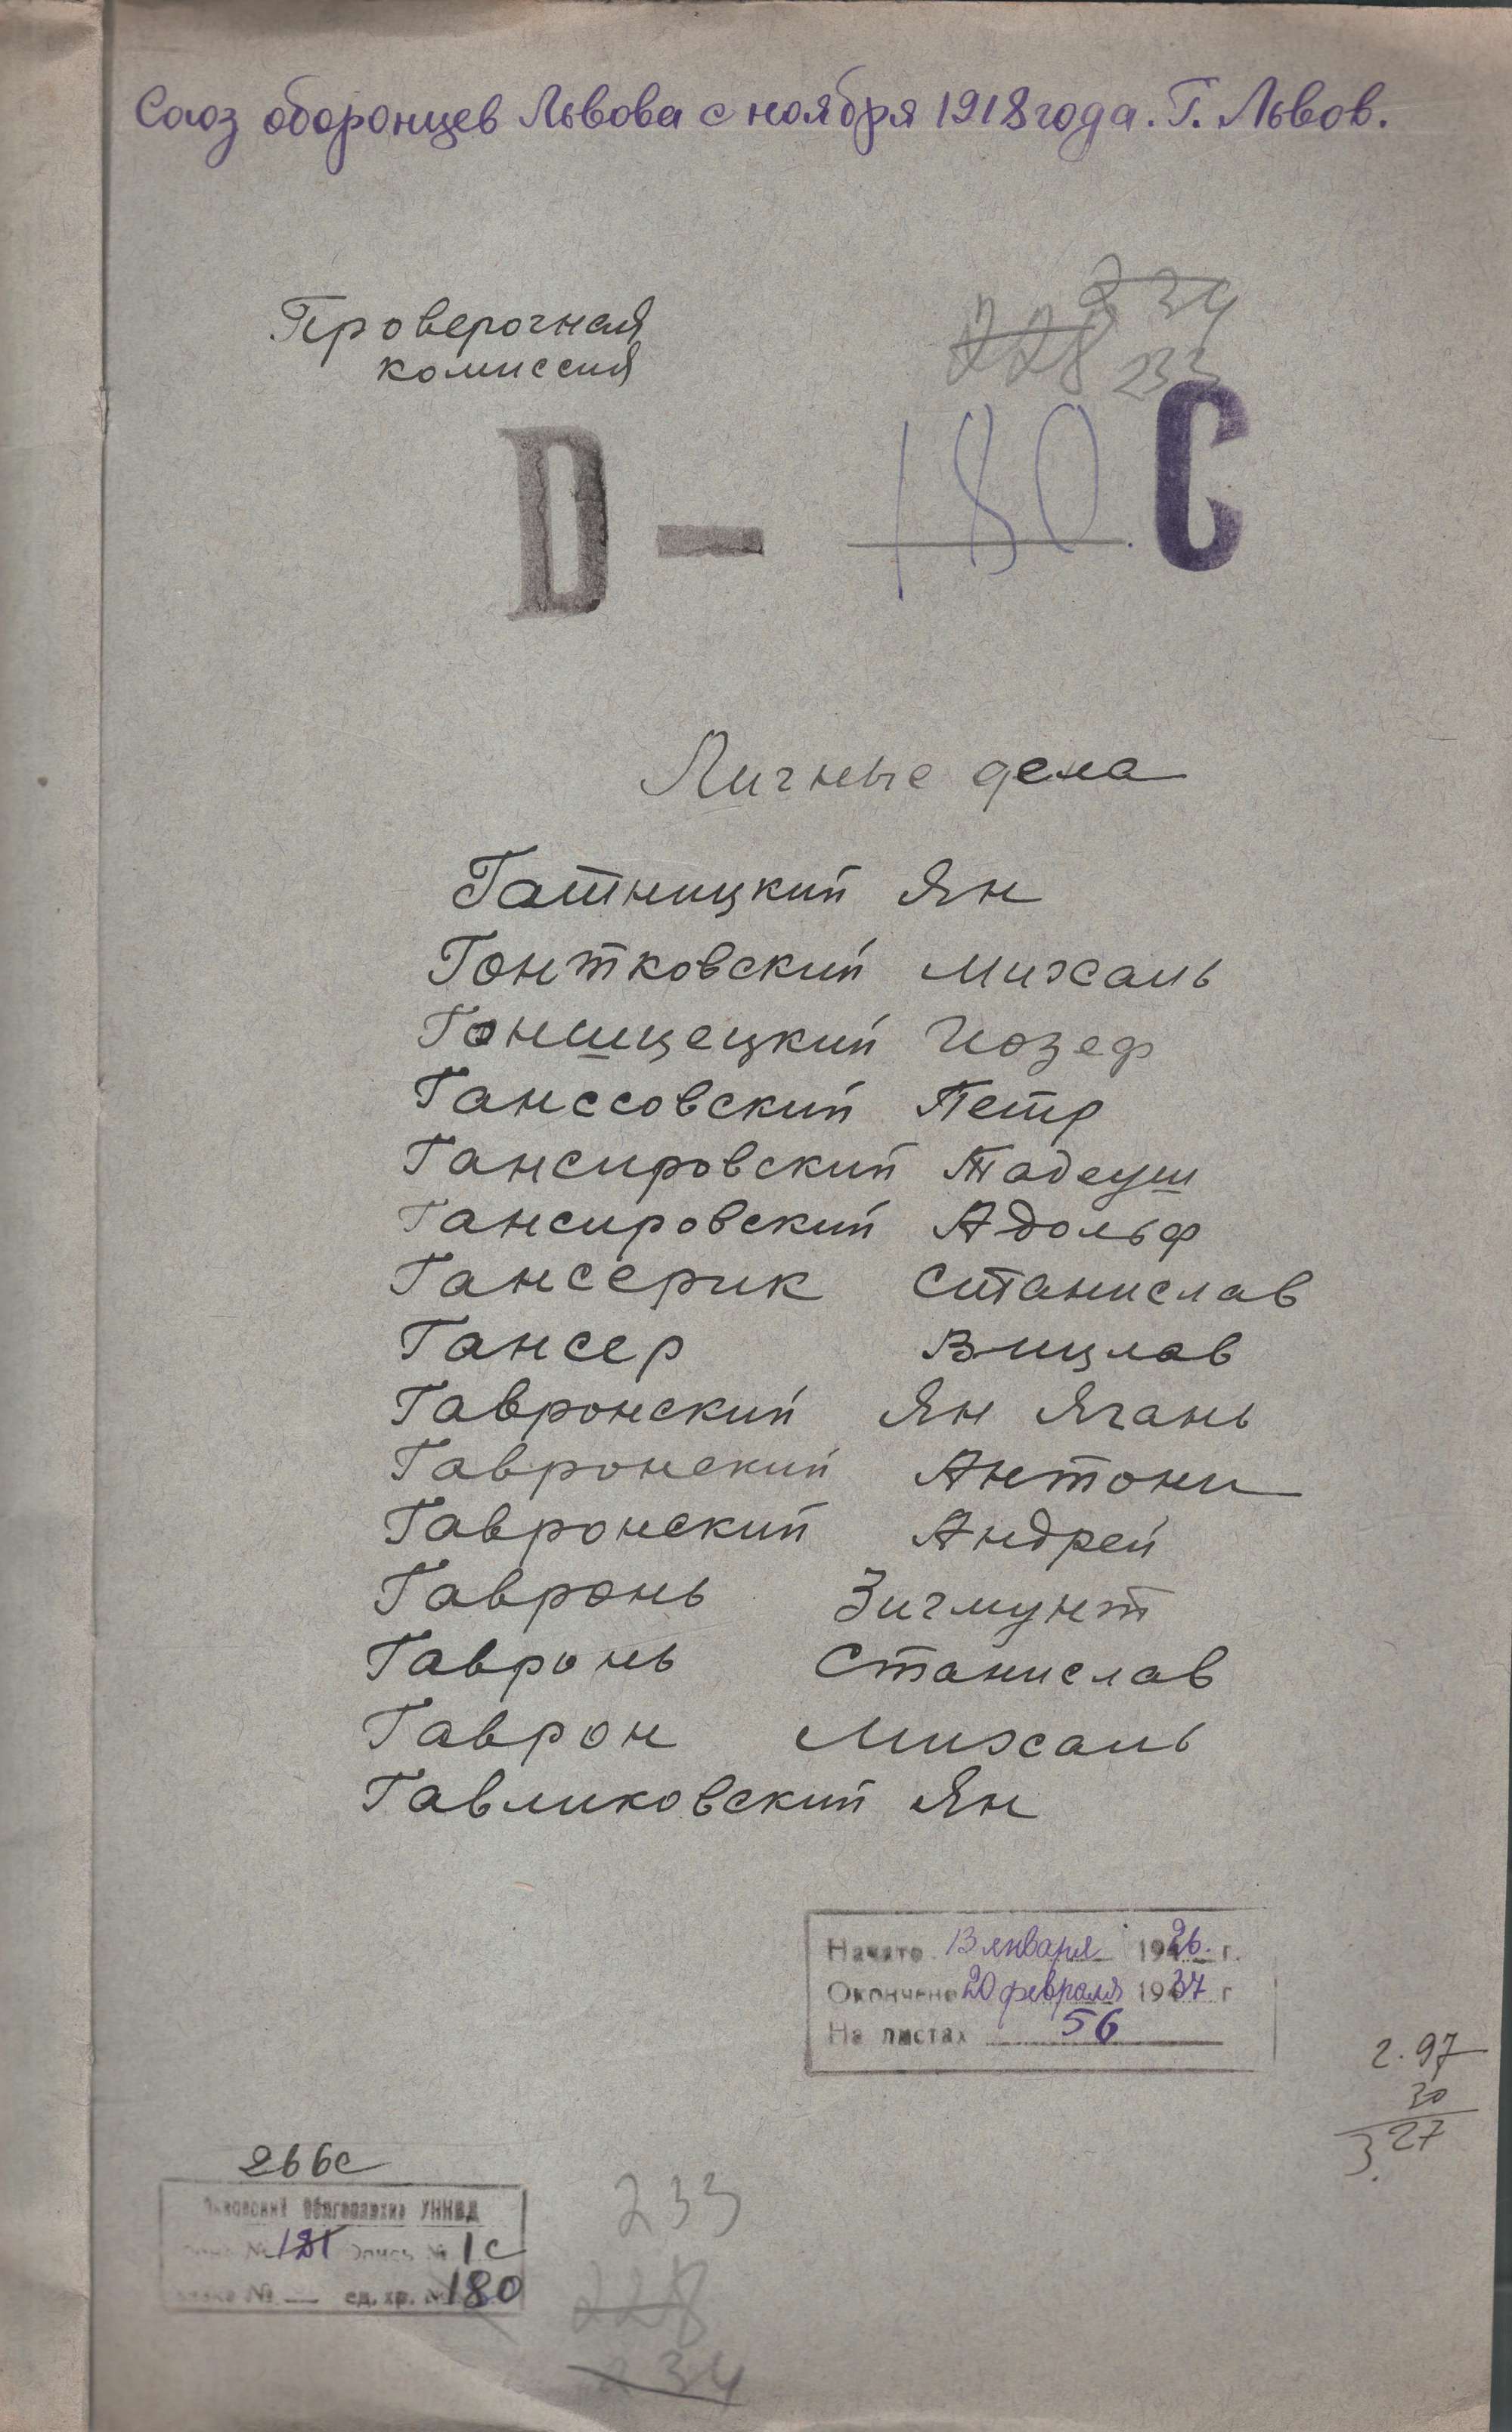 Союз оборонцев Львова с ноября 1918 года. Г. Львов.
Проверочная
комиссия
234
228 233
D — 180. C
Личные дела
Гатницкий Ян
Гонтковский Михаль
Гонищецкий Иозеф
Ганссовский Петр
Гансировский Тадеуш
Гансировский Адольф
Гансерик Станислав
Гансер Вицлав
Гавронский Ян Ягань
Гавронский Антони
Гавронский Андрей
Гавронь Зигмунт
Гавронь Станислав
Гаврон Михаль
Гавликовский Ян
Начато 13 января 1926 г.
Окончено 20 февраля 1937 г
На листах 56
2.97
30
3.27
266с
Львовский Облгосархив УНКВД
№ 121 Опись № 1с
№ — ед. хр. № 180
233
228
234